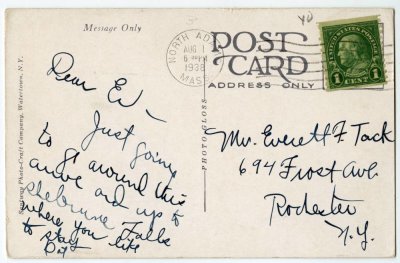 Message Only
NORTH ADAMS
AUG 1
6 PM
1938
MASS.
POST
CARD
ADDRESS ONLY
UNITED STATES POSTAGE
1 CENT 1
Santway Photo-Craft Company, Watertown, N.Y.
PHOTO GLOSS
Dear Ev
Just going
to go around this
curve and up to
Shelburne Falls
where you like
to stay
Mr. Everett F. Tack
694 Frost Ave.
Rochester
N.Y.